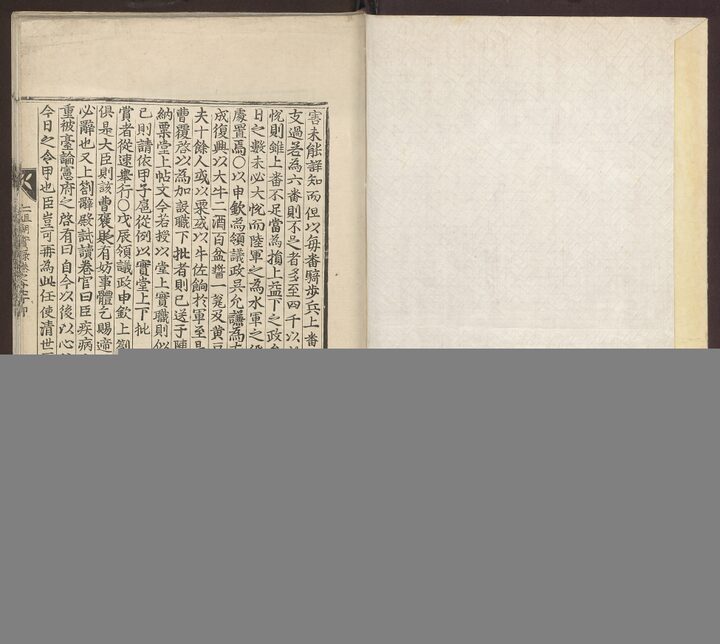 害未能詳知而但以每番騎步兵上番
支過若為六番則不足之者多至四千以
悅則雖上番不足當為損上益下之政
日之數未必大悅而陸軍之為水軍之
處置焉○以申欽為領議政吳允謙為
成復興以大牛二酒百盆醬一瓮及黃豆
夫十餘人或以粟或以牛佐餉於軍至
曹覆啓以為加設職下批者則已送子
納粟堂上帖文今若授以堂上實職則似
已則請依甲子扈從例以實堂上下批
賞者從速擧行○戊辰領議政申欽上劄
俱是大臣則該曹褒貶有妨事體乞賜遆
必辭也又上劄辭殿試讀卷官曰臣疾病
重被臺論憲府之啓有曰自今以後以心
今日之令甲也臣豈可再為此任使淸世
仁祖朝實錄卷之